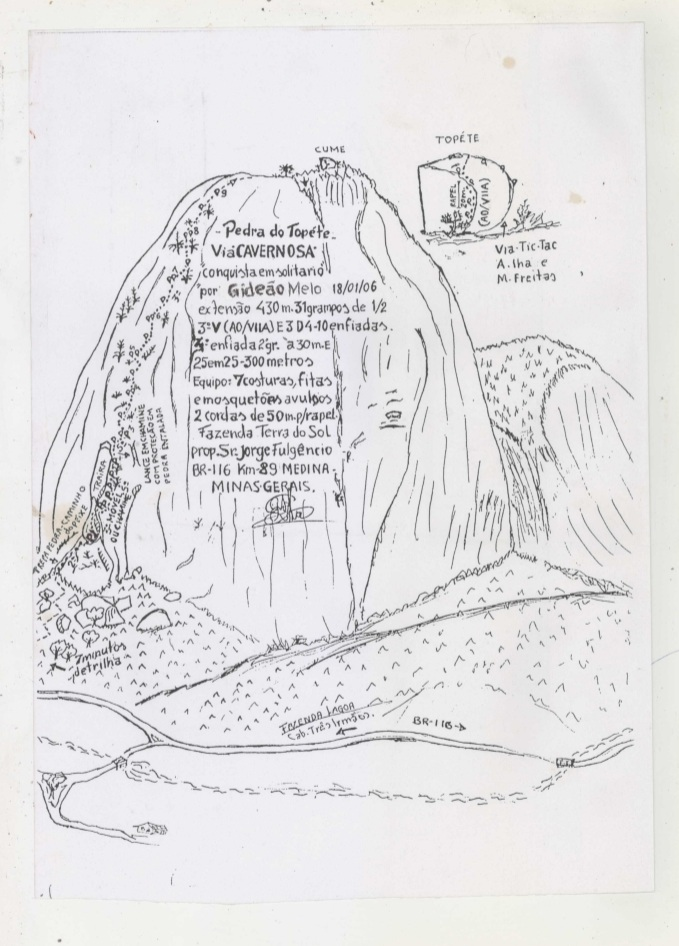 TOPÉTE
CUME
RAPEL
(AO/VIIA)
Via-Tic-Tac
A. Iha e
M. Freitas
-Pedra do Topéte-
Via CAVERNOSA
conquista em solitario
por Gideão Melo 18/01/06
extensão 430 m. 31 grampos de 1/2
3ºV (AO/VIIA) E3 D4-10 enfiadas.
4ª enfiada 2º gr. à 30 m. E
25 em 25-300 metros
Equipo: 7 costuras, fitas
e mosquetões avulsos
2 cordas de 50 m. p/rapel
Fazenda Terra do Sol
prop. Sr. Jorge Fulgêncio
BR-116 Km-89 MEDINA-
MINAS-GERAIS.
P9
P8
P7
3º
P5
LANCE EM CHAMINE
COM PROTEÇÃO EM
PEDRA ENTALADA
TRAIRA
OU CHAMINE
TREPA PEDRA-CAMINHO
do PEIXE
7 minutos
de trilha
FAZENDA LAGOA
Cab. Três Irmãos.
BR-116